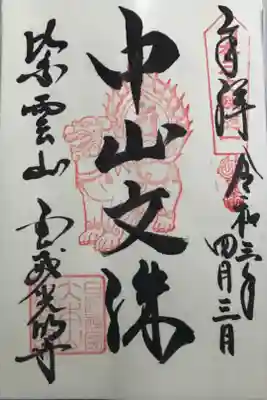 奉拝
令和三年
四月三日
中山文殊
紫雲山
金戒光明寺